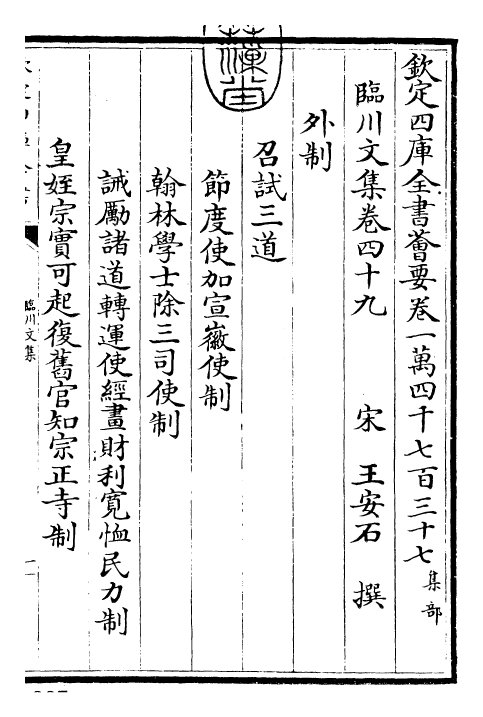 欽定四庫全書薈要卷一萬四千七百三十七 集部
臨川文集卷四十九 宋 王安石 撰
外制
召試三道
節度使加宣徽使制
翰林學士除三司使制
誡勵諸道轉運使經畫財利寛恤民力制
皇姪宗實可起復舊官知宗正寺制
臨川文集
一